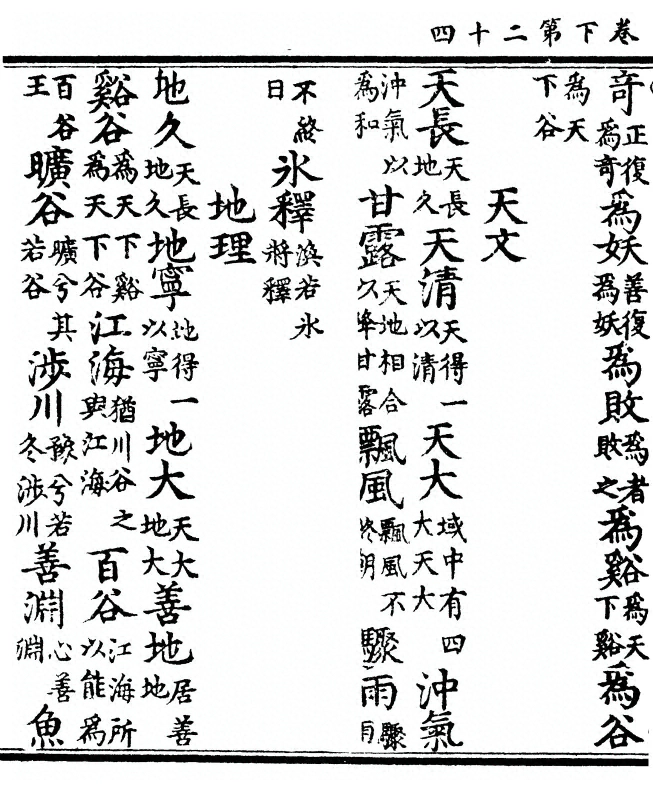 卷下第二十四
奇正復爲奇爲妖善復爲妖爲敗爲者敗之爲谿爲天下谿爲谷
爲天下谷
天文
天長天長地久天清天得一以清天大域中有四大天大沖氣
沖氣以爲和甘露天地相合以降甘露飄風飄風不終朝驟雨驟雨
不終日氷釋渙若氷將釋
地理
地久天長地久地寧地得一以寧地大天大地大善地居善地
谿谷爲天下谿爲天下谷江海猶川谷之與江海百谷江海所以能爲
百谷王曠谷曠兮其若谷涉川豫兮若冬涉川善淵心善淵魚